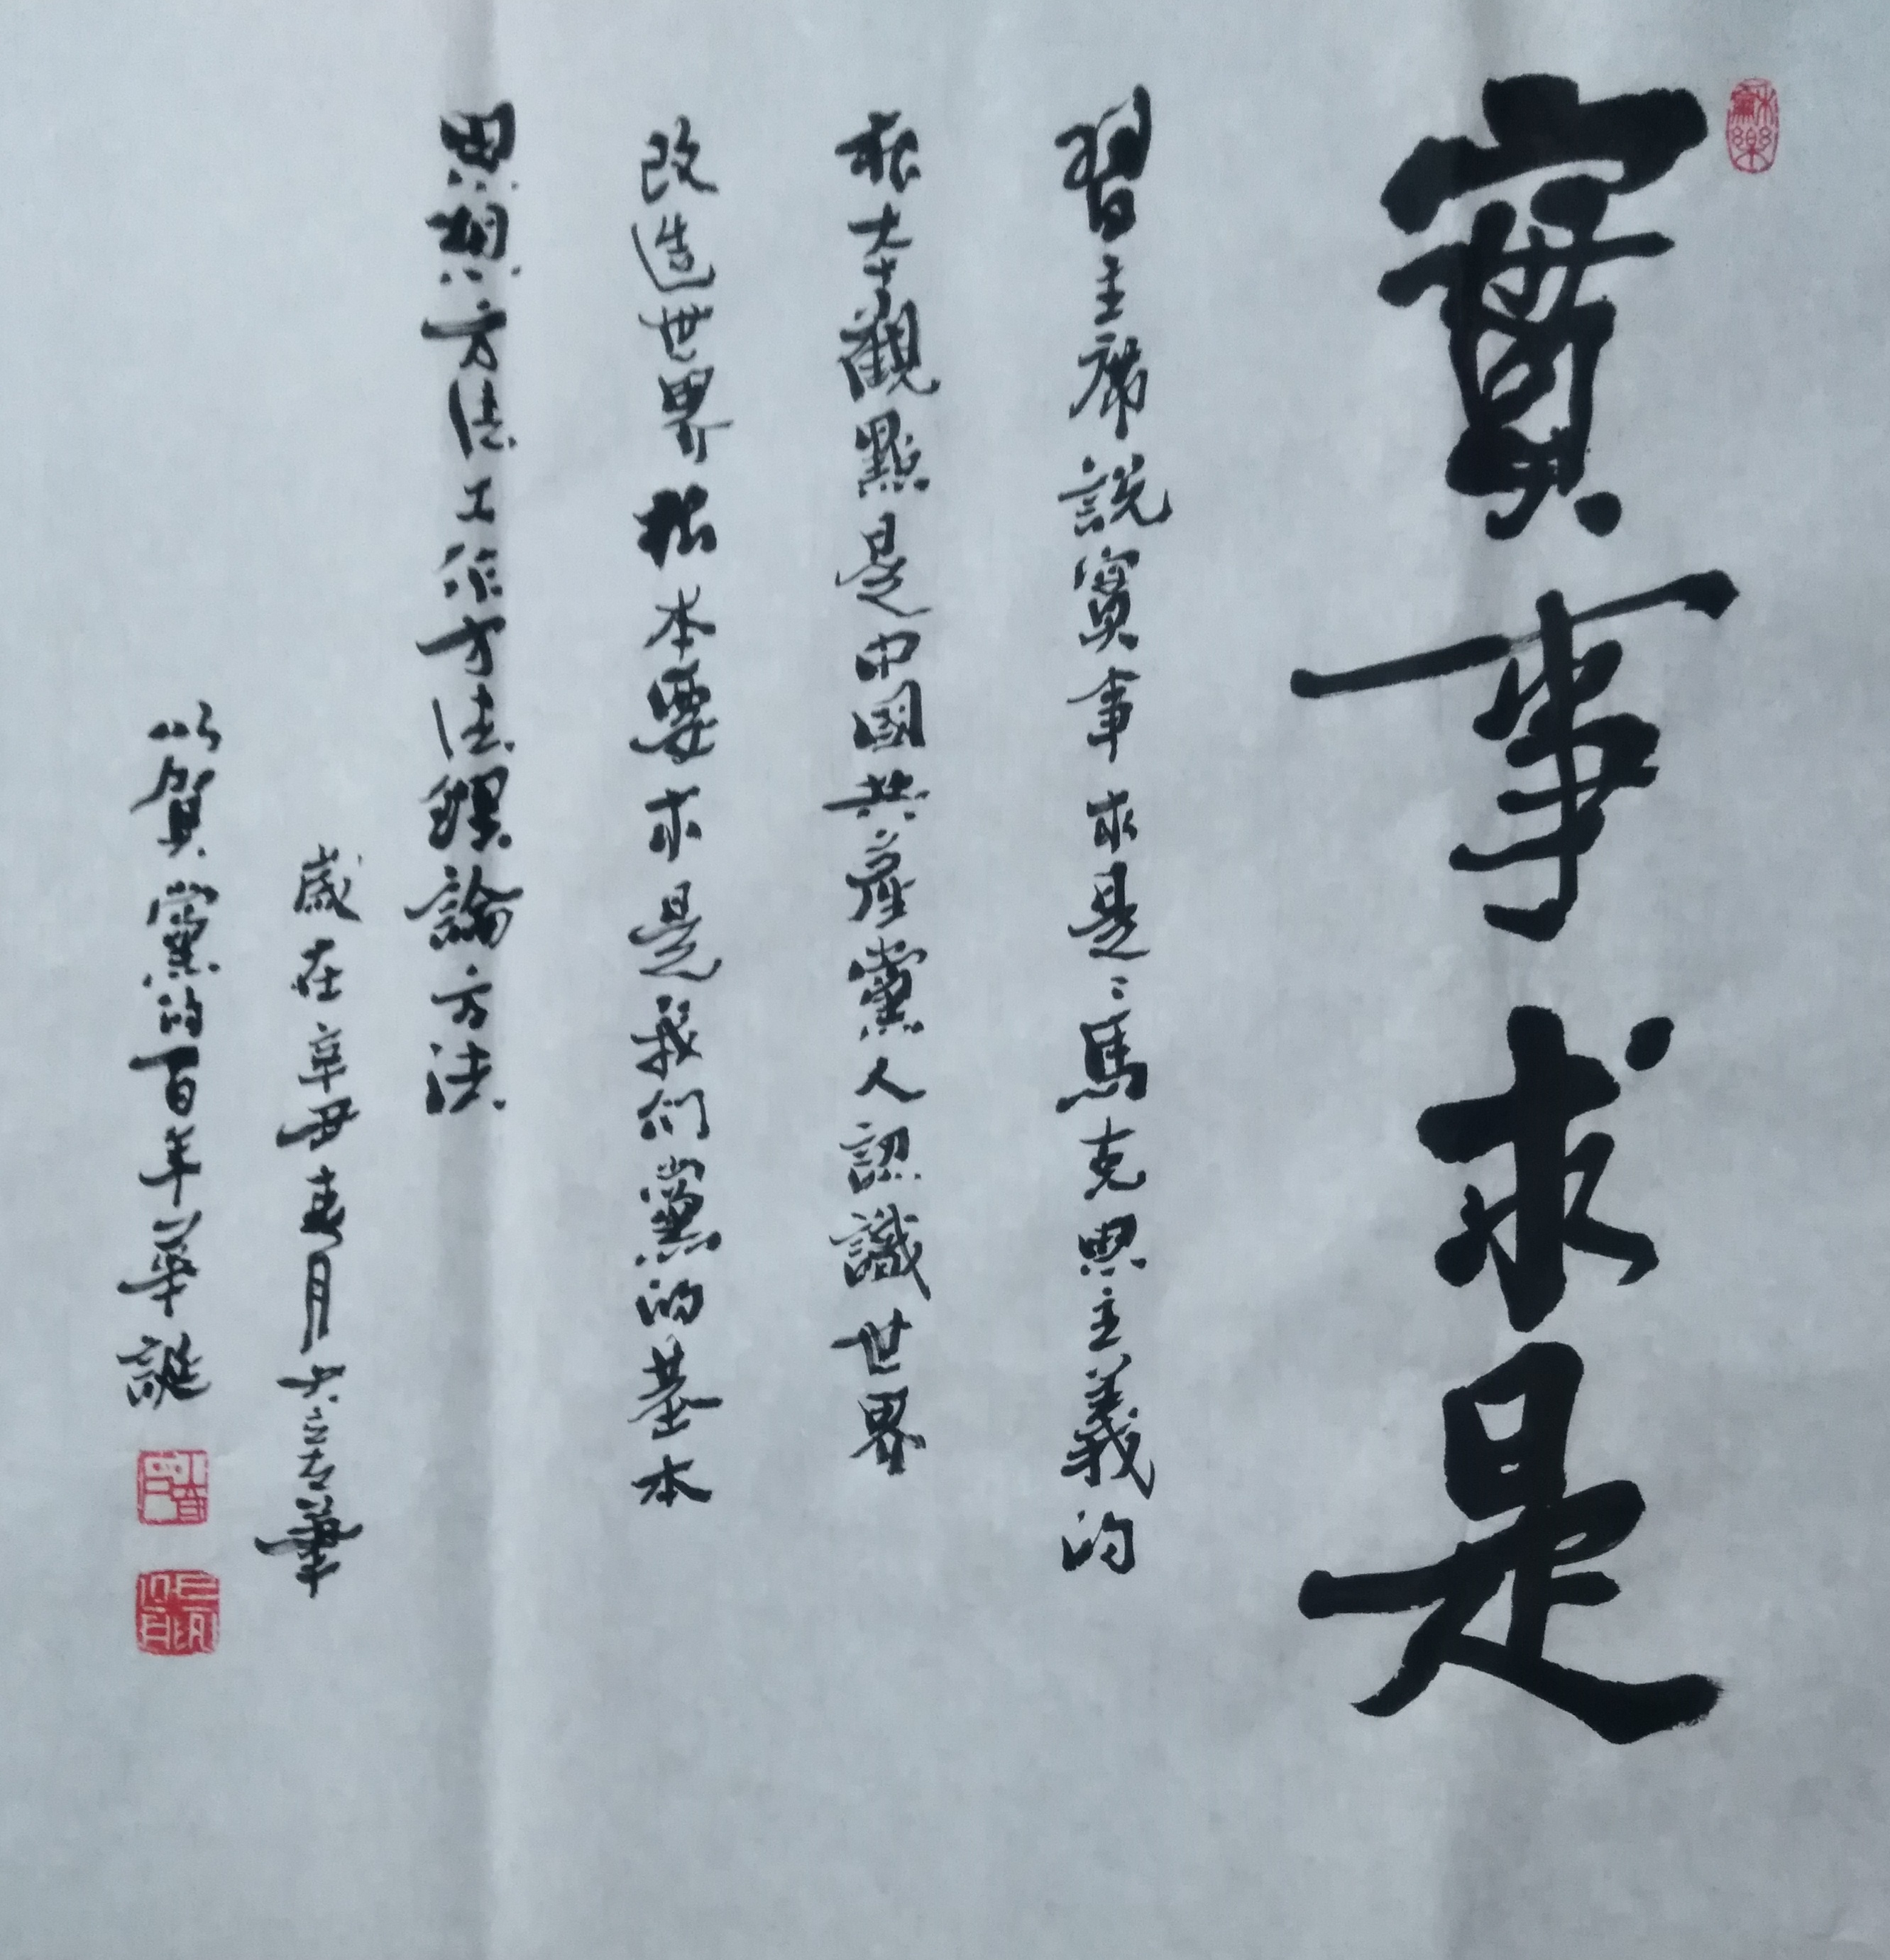 實事求是
習主席說實事求是：馬克思主義的
根本觀點是中國共產黨人認識世界
改造世界根本要求是我们黨的基本
思想方法工作方法理論方法
歲在辛丑春月
以賀黨的百年華誕
和樂